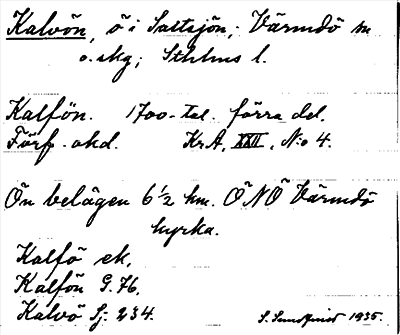 Kalvön, ö i Saltsjön; Värmdö sn
o. skg; Sthlms l.
Kalfön. 1700-tal. förra del.
Förf. okd. KrA, XXII, N:o 4.
Ön belägen 6 1/2 km. ÖNÖ Värmdö
kyrka.
Kalfö ek.
Kalfön G. 76.
Kalvö Sj. 234.
S. Sundqvist 1935.